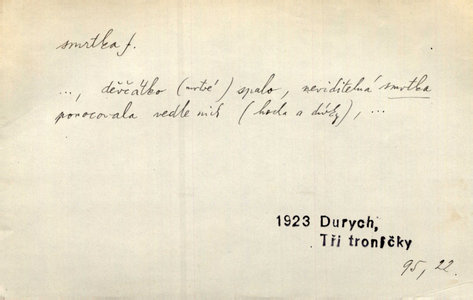 smrtka f.
..., děvčátko (mrtvé) spalo, neviditelná smrtka
ponocovala vedle nich (hocha a dívky), ...
1923 Durych,
Tři troníčky
95, 22.